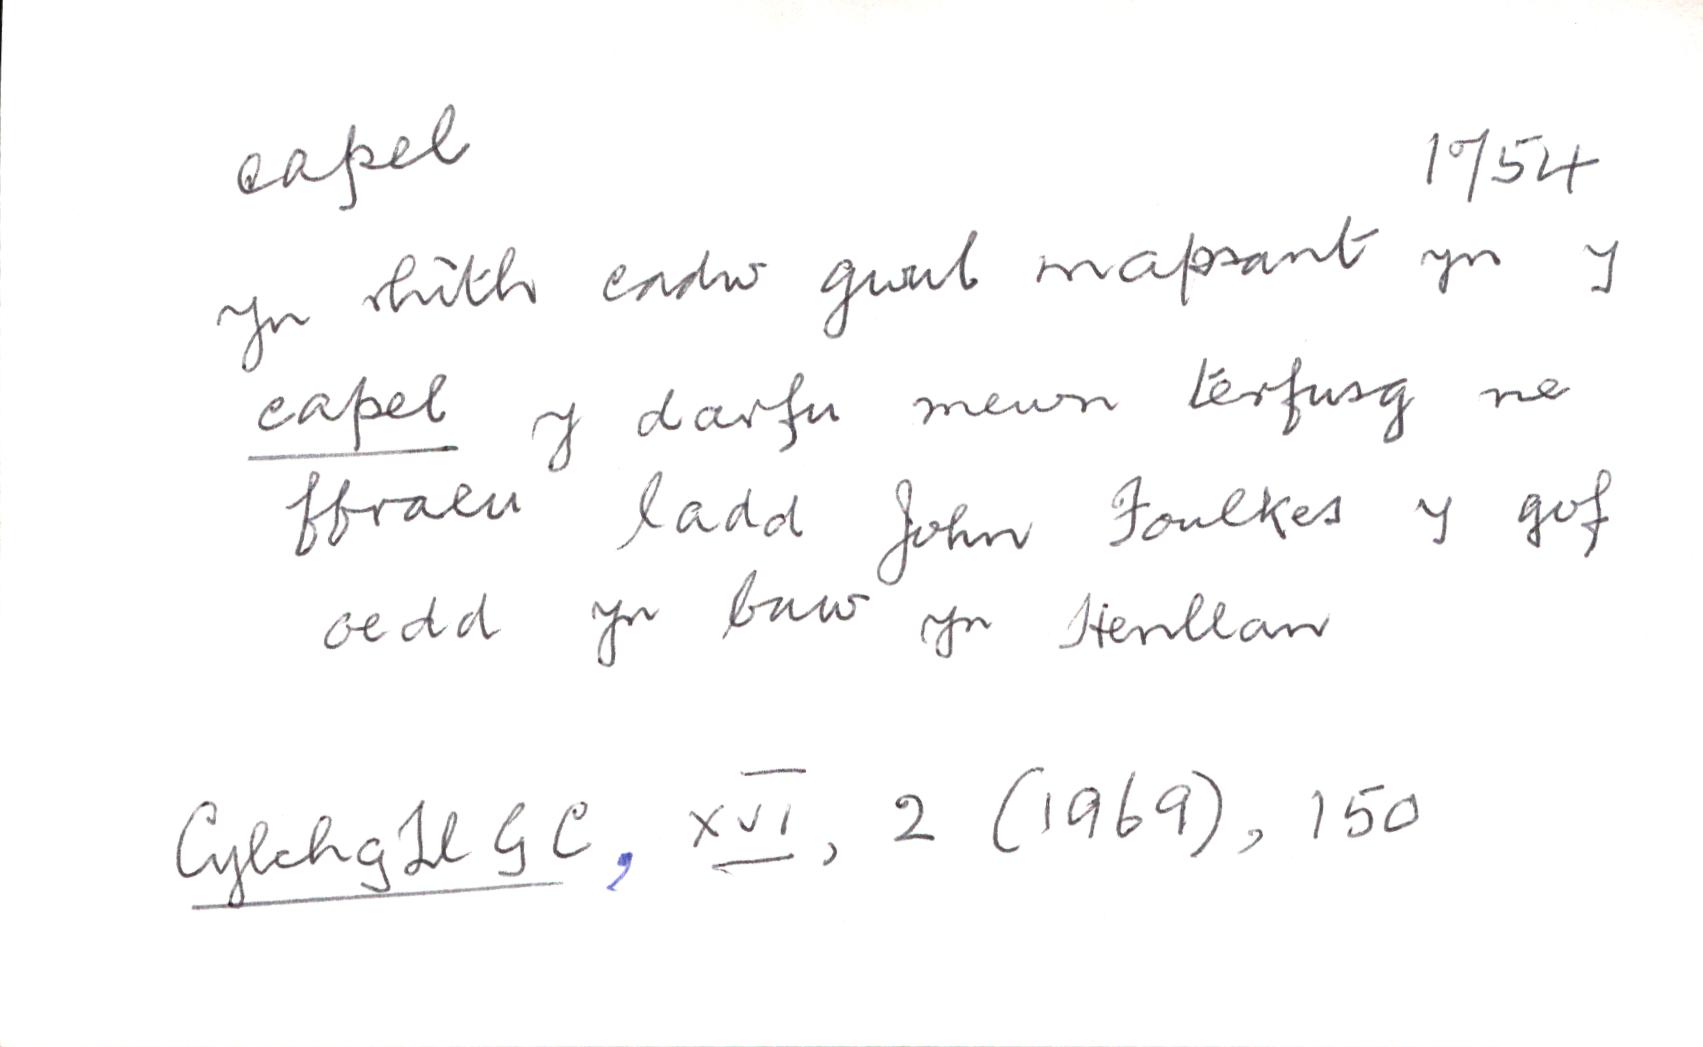 capel 1754
yn rhith cadw gwul mapsant yn y
capel y darfu mewn terfusg ne
ffraeu ladd John Foulkes y gof
oedd yn buw yn Henllan
CylchgLlGC, XVI, 2 (1969), 150